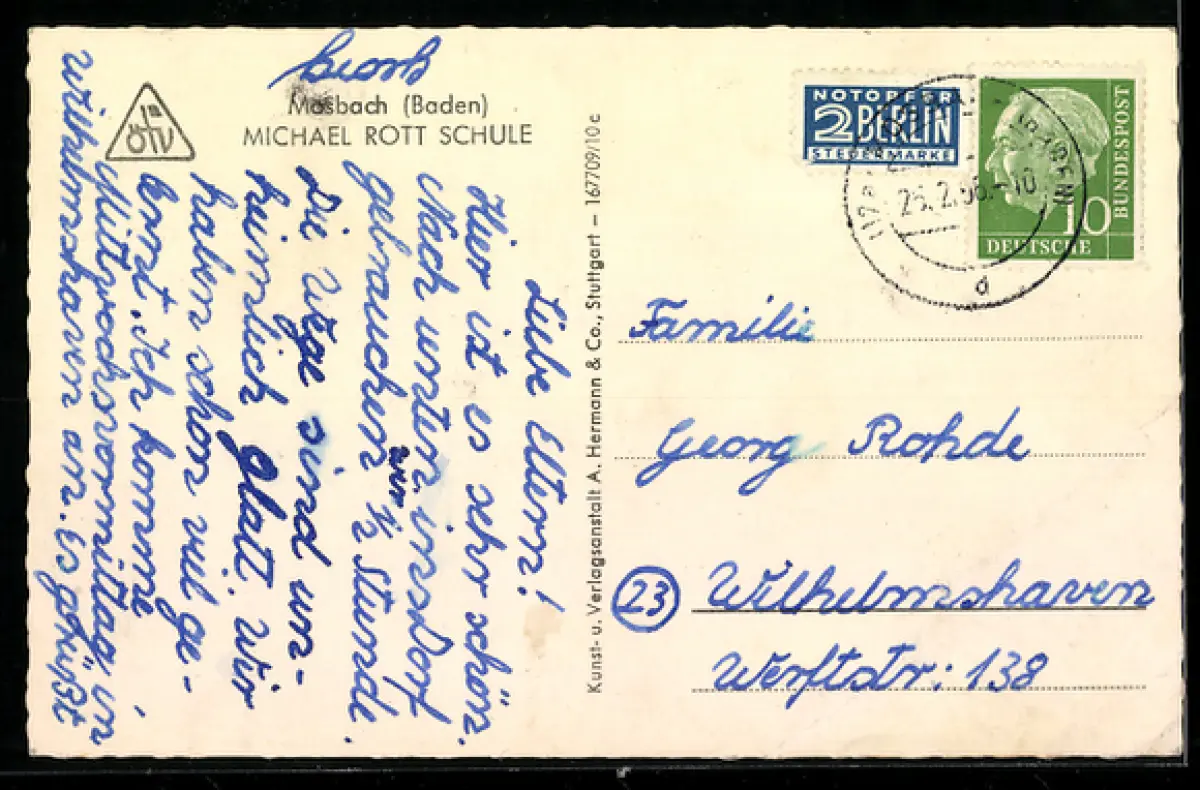 Mosbach (Baden)
MICHAEL ROTT SCHULE
Liebe Eltern!
Hier ist es sehr schön.
Nach unten ins Dorf
gebrauchen wir ½ Stunde.
Die Wege sind un-
heimlich glatt. Wir
haben schon viel ge-
lernt. Ich komme
Mittwochvormittag in
Wilhelmshaven an. Es grüßt
Georg
Kunst- u. Verlagsanstalt A. Hermann & Co., Stuttgart – 167709/10 c
NOTOPFER
2 BERLIN
STEUERMARKE
DEUTSCHE
BUNDESPOST
10
25.2.56.-10
d
Familie
Georg Rohde
23 Wilhelmshaven
Werftstr: 138